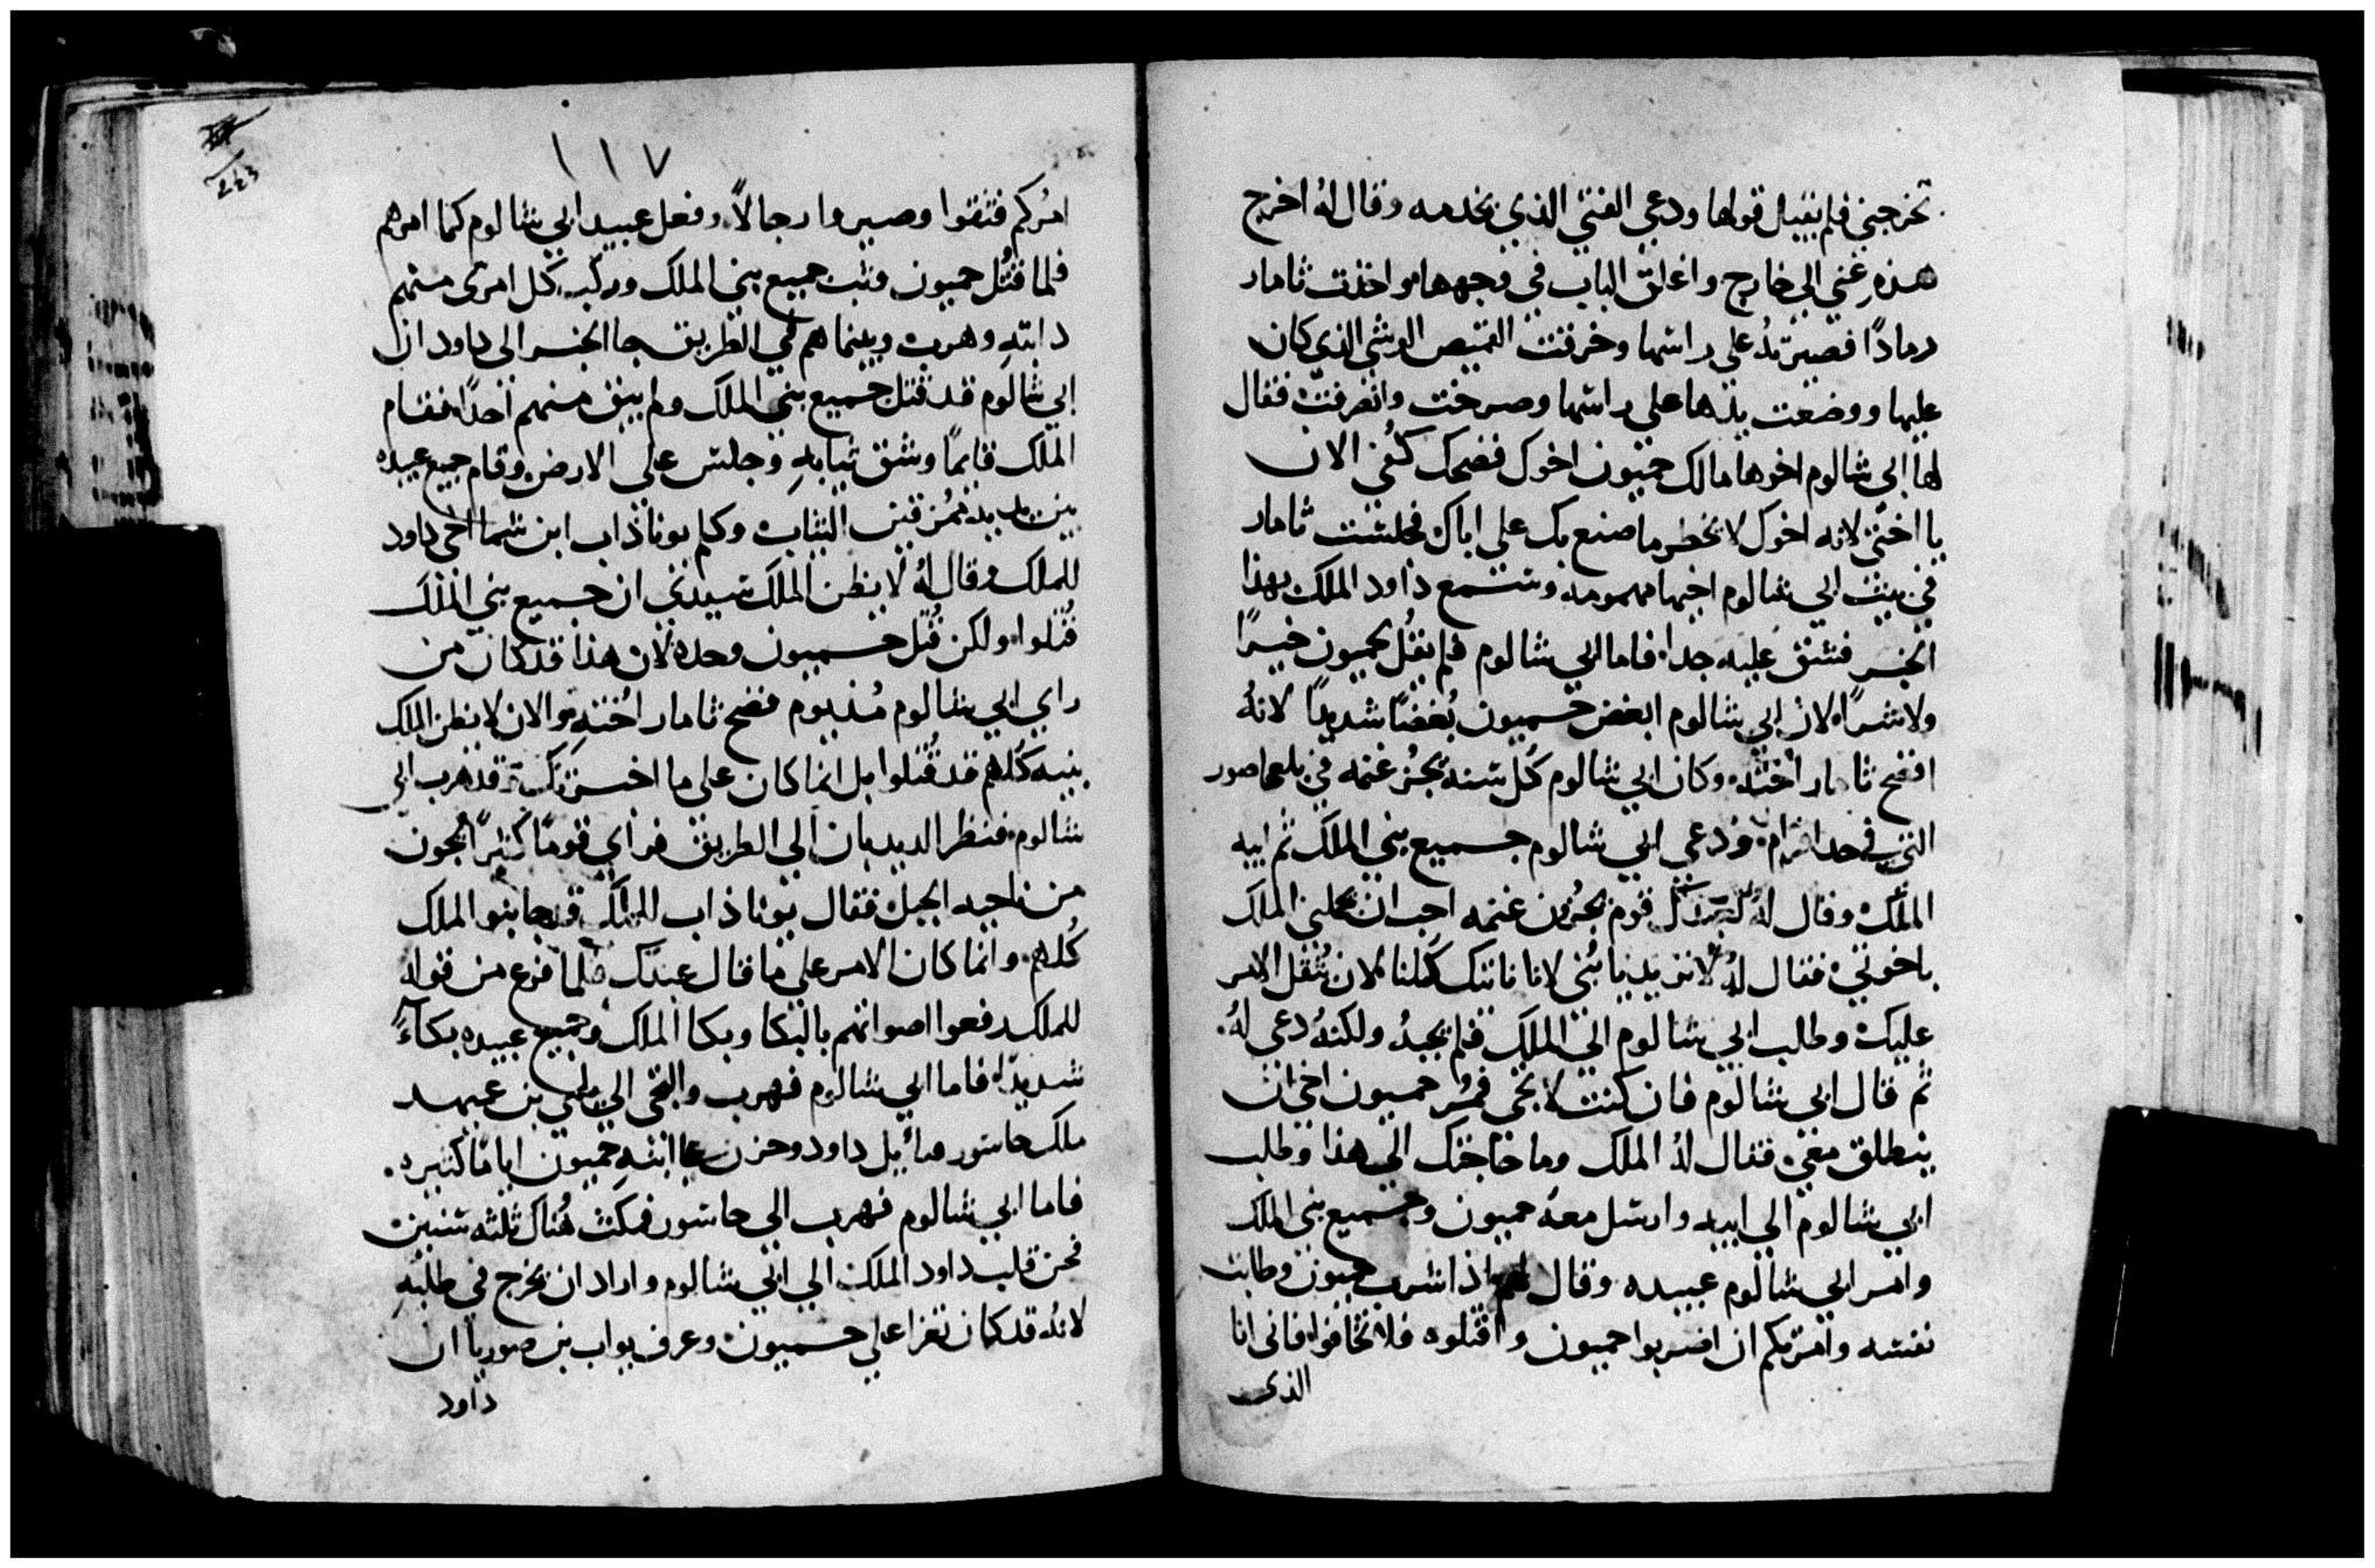 تخرجني فلم يقبل قولها ودعي الفتي الذي يخدمه وقال له اخرج
هذه عني الي خارج واغلق الباب في وجهها واخذت ثامار
رمادًا فصيرته على راسها وخرقت القميص الوشي الذي كان
عليها ووضعت يدها علي راسها وصرخت وانصرفت فقال
لها ابي شالوم اخوها مالك حميون اخوك فضحك كفي الان
يا اختي لانه اخوك لا يخطر ما صنع بك علي بالك فجلست ثامار
في بيت ابي شالوم اخيها مهمومه وسمع داود الملك بهذا
الخبر فشق عليه جدا فاما ابي شالوم فلم يقل لحميون خيرًا
ولا شرًا لان ابي شالوم ابغض حميون بُغضًا شديدًا لانهُ
افضح ثامار اخته وكان ابي شالوم كُل سنه يجز غنمه في بلعاصور
التي في حد افرام ودعي ابي شالوم جميع بني الملك ثم ابيه
الملك وقال لهُ قوم يجزون غنمه احب ان الملك
باخوتي فقال لهُ لا تريد يا بُني لانا ناتيك كلنا لان يثقل الامر
عليك وطلب ابي شالوم الي الملك فلم يجبهُ ولكنهُ دعي لهُ
ثم قال ابي شالوم فان كنت لا تجي فمُر حميون اخي ان
ينطلق معي فقال لهُ الملك وما حاجتك الي هذا وطلب
ابي شالوم الي ابيه وارسل معه حميون وجميع بني الملك
وامر ابي شالوم عبيده وقال لهم اذا شرب حميون وطابت
نفسه وامرتكم ان اضربوا حميون واقتلوه فلا تخافوا فاني انا
الذي
١١٧
243
امُركم فتقوا وصيروا رجالاً وفعل عبيد ابي شالوم كما امرهم
فلما قُتل حميون وثب جميع بني الملك وركب كل امرى منهم
دابته وهرب وبينما هم في الطريق جا الخبر الى داود ان
ابي شالوم قد قتل جميع بني الملك ولم يبق منهم احدًا فقام
الملك قايمًا وشق ثيابه وجلس علي الارض وقام جميع عبيده
بين يديه ممُزقين الثياب وكلم يوناذاب ابن شما اخي داود
للملك وقال لهُ لا يظن الملك سيدي ان جميع بني الملك
قُتلوا ولكن قُتل حميون وحده لان هذا قد كان من
راي ابي شالوم مُنذ يوم فضح ثامار اُخته والان لا يظن الملك
بنيه كُلهم قد قُتلوا بل انما كان على ما اخبرتك قد هرب ابي
شالوم فنظر الديدبان الي الطريق فراي قومًا كثيرًا يجون
من ناحيه الجبل فقال يوناذاب للملك قد جا بنو الملك
كُلهم وانما كان الامر علي ما قال عبدك فلما فرغ من قوله
للملك رفعوا اصواتهم بالبكا وبكا الملك وجميع عبيده بكآءً
شديدًا فاما ابي شالوم فهرب والتجى الي تلمي بن عميهد
ملك حاسور وحزن علي ابنه حميون ايامًا كثيره
فاما ابي شالوم فهرب الي حاسور فمكث هُناك ثلثه سنين
فحن قلب داود الملك الي ابي شالوم واراد ان يخرج في طلبه
لانهُ قد كان تعزا علي حميون وعرف يواب بن صوريا ان
داود